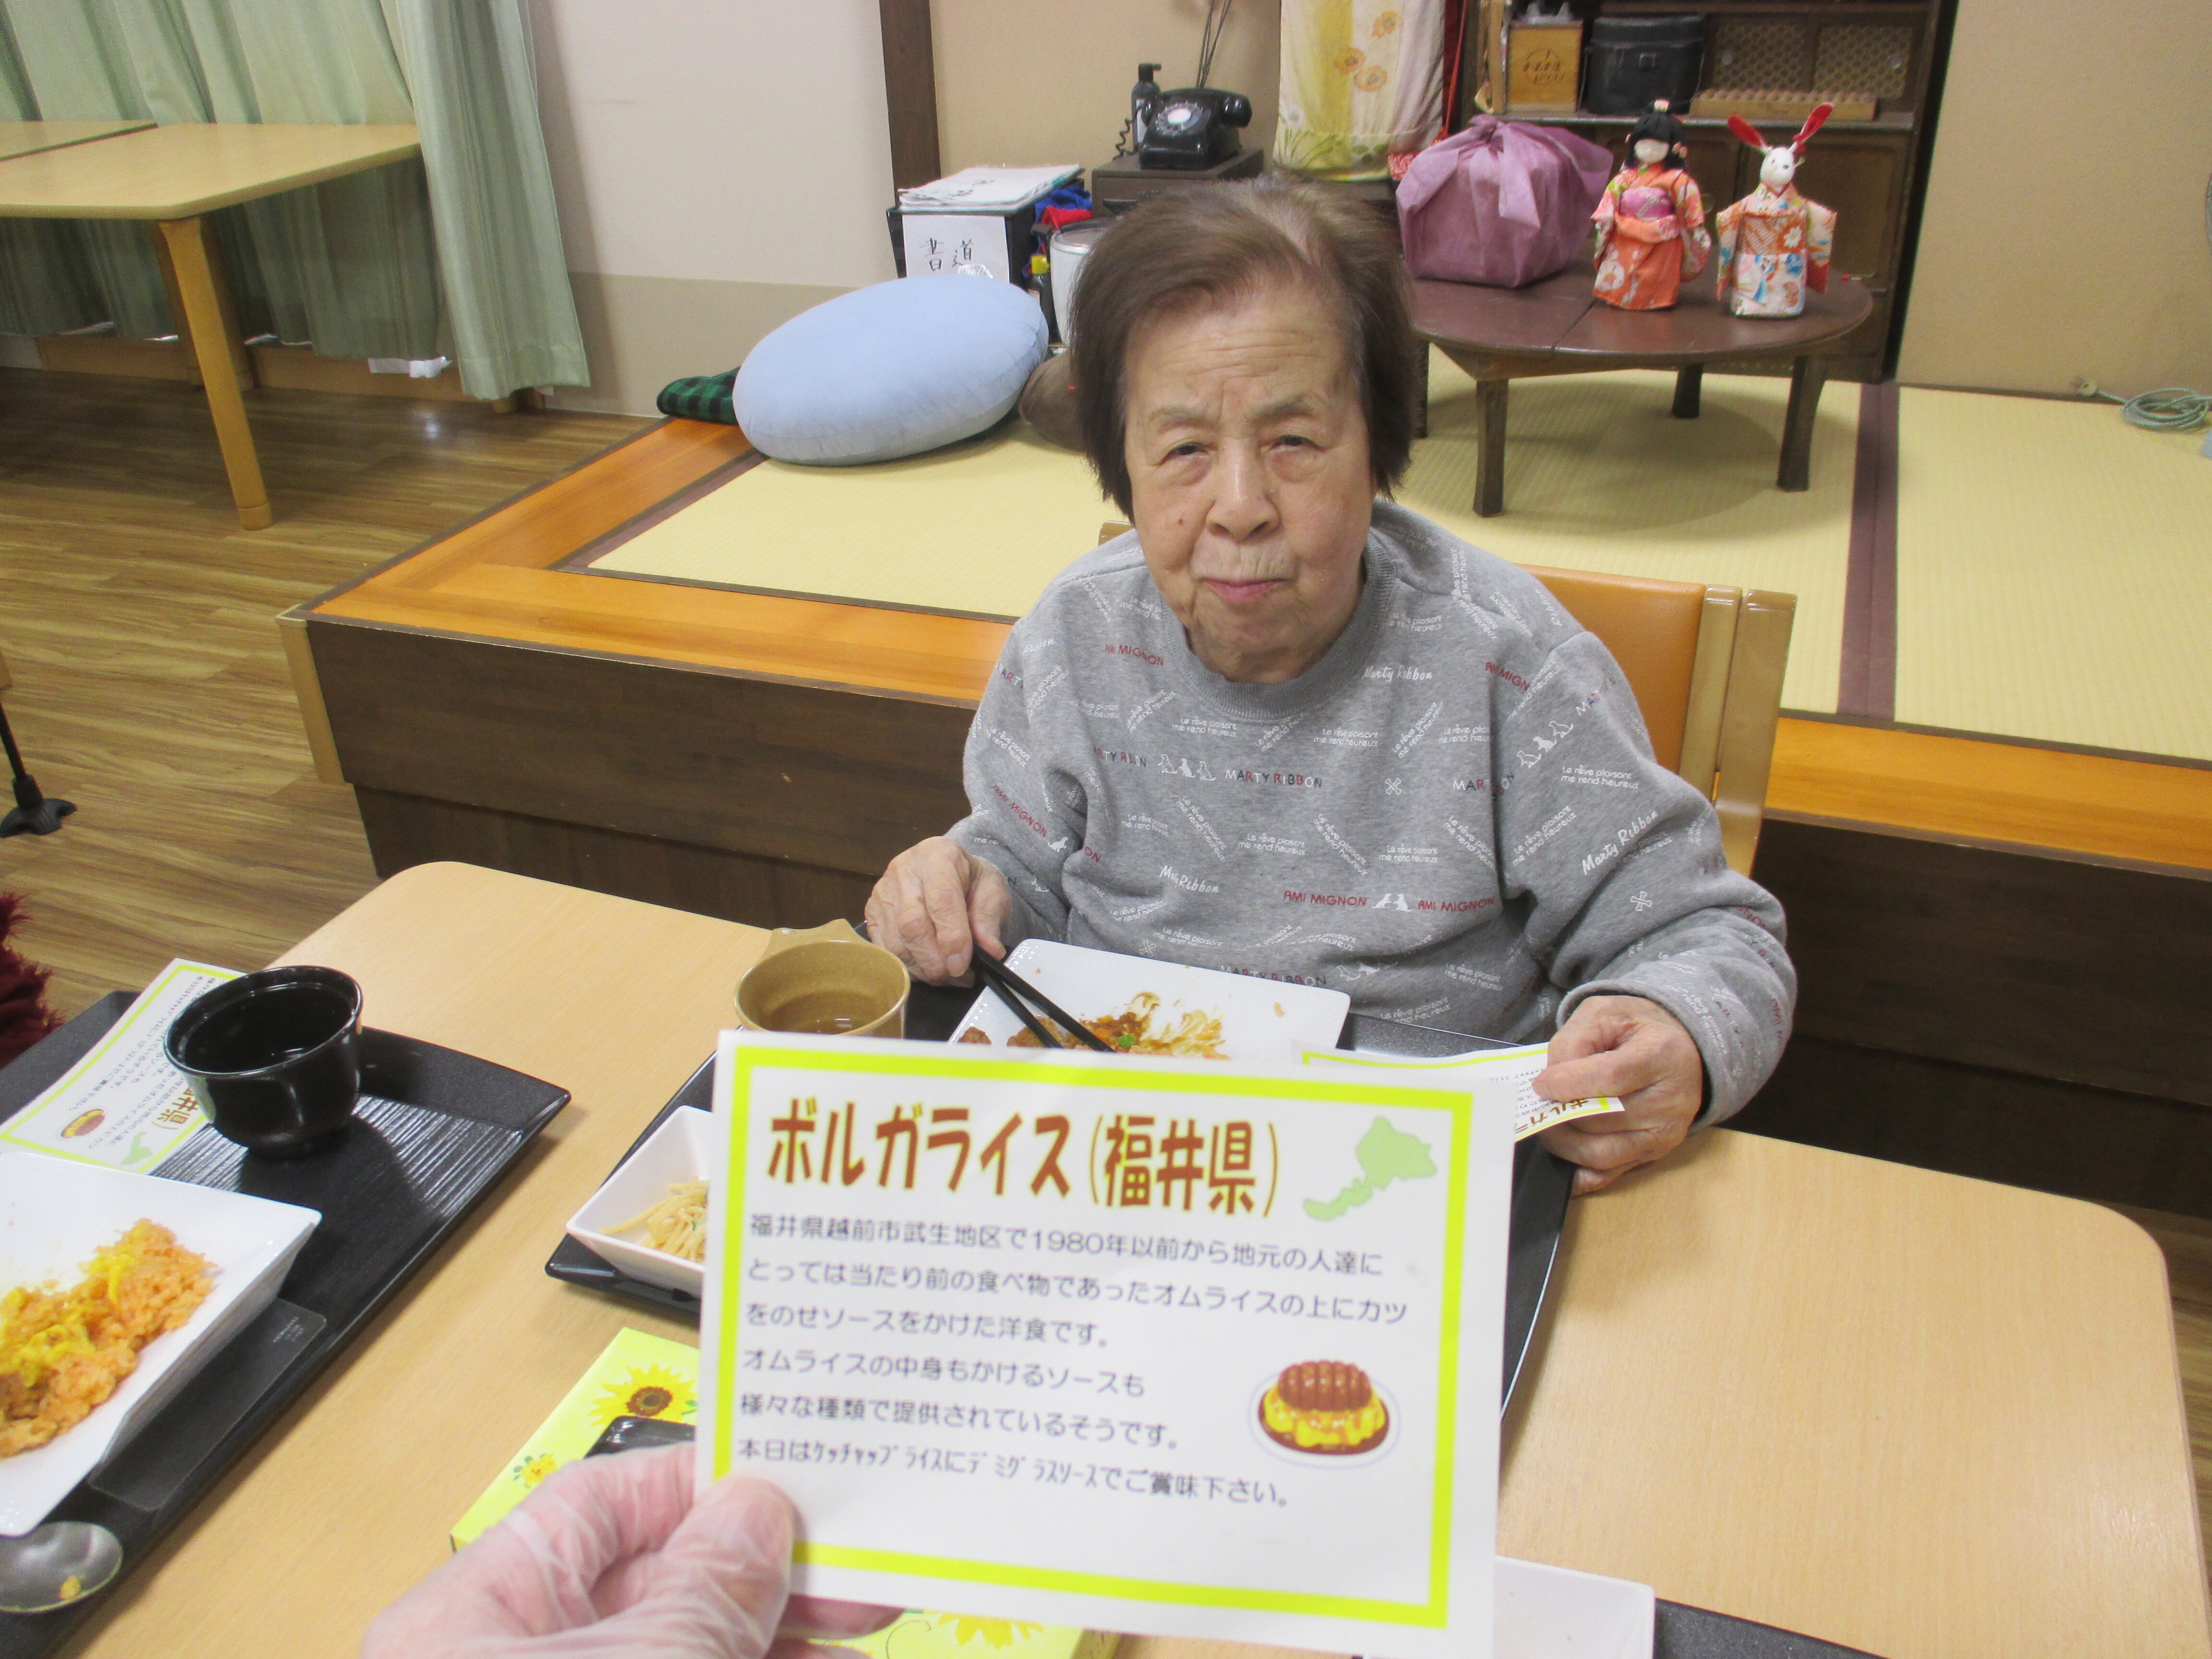 書道
Marty Ribbon
MARTY RIBBON
Le rêve plaisant
me rend heureux
AMI MIGNON
AMI MIGNON
ボルガライス(福井県)
福井県越前市武生地区で1980年以前から地元の人達に
とっては当たり前の食べ物であったオムライスの上にカツ
をのせソースをかけた洋食です。
オムライスの中身もかけるソースも
様々な種類で提供されているそうです。
本日はｹｯﾁｬｯﾌﾟﾗｲｽにﾃﾞﾐｸﾞﾗｽｿｰｽでご賞味下さい。